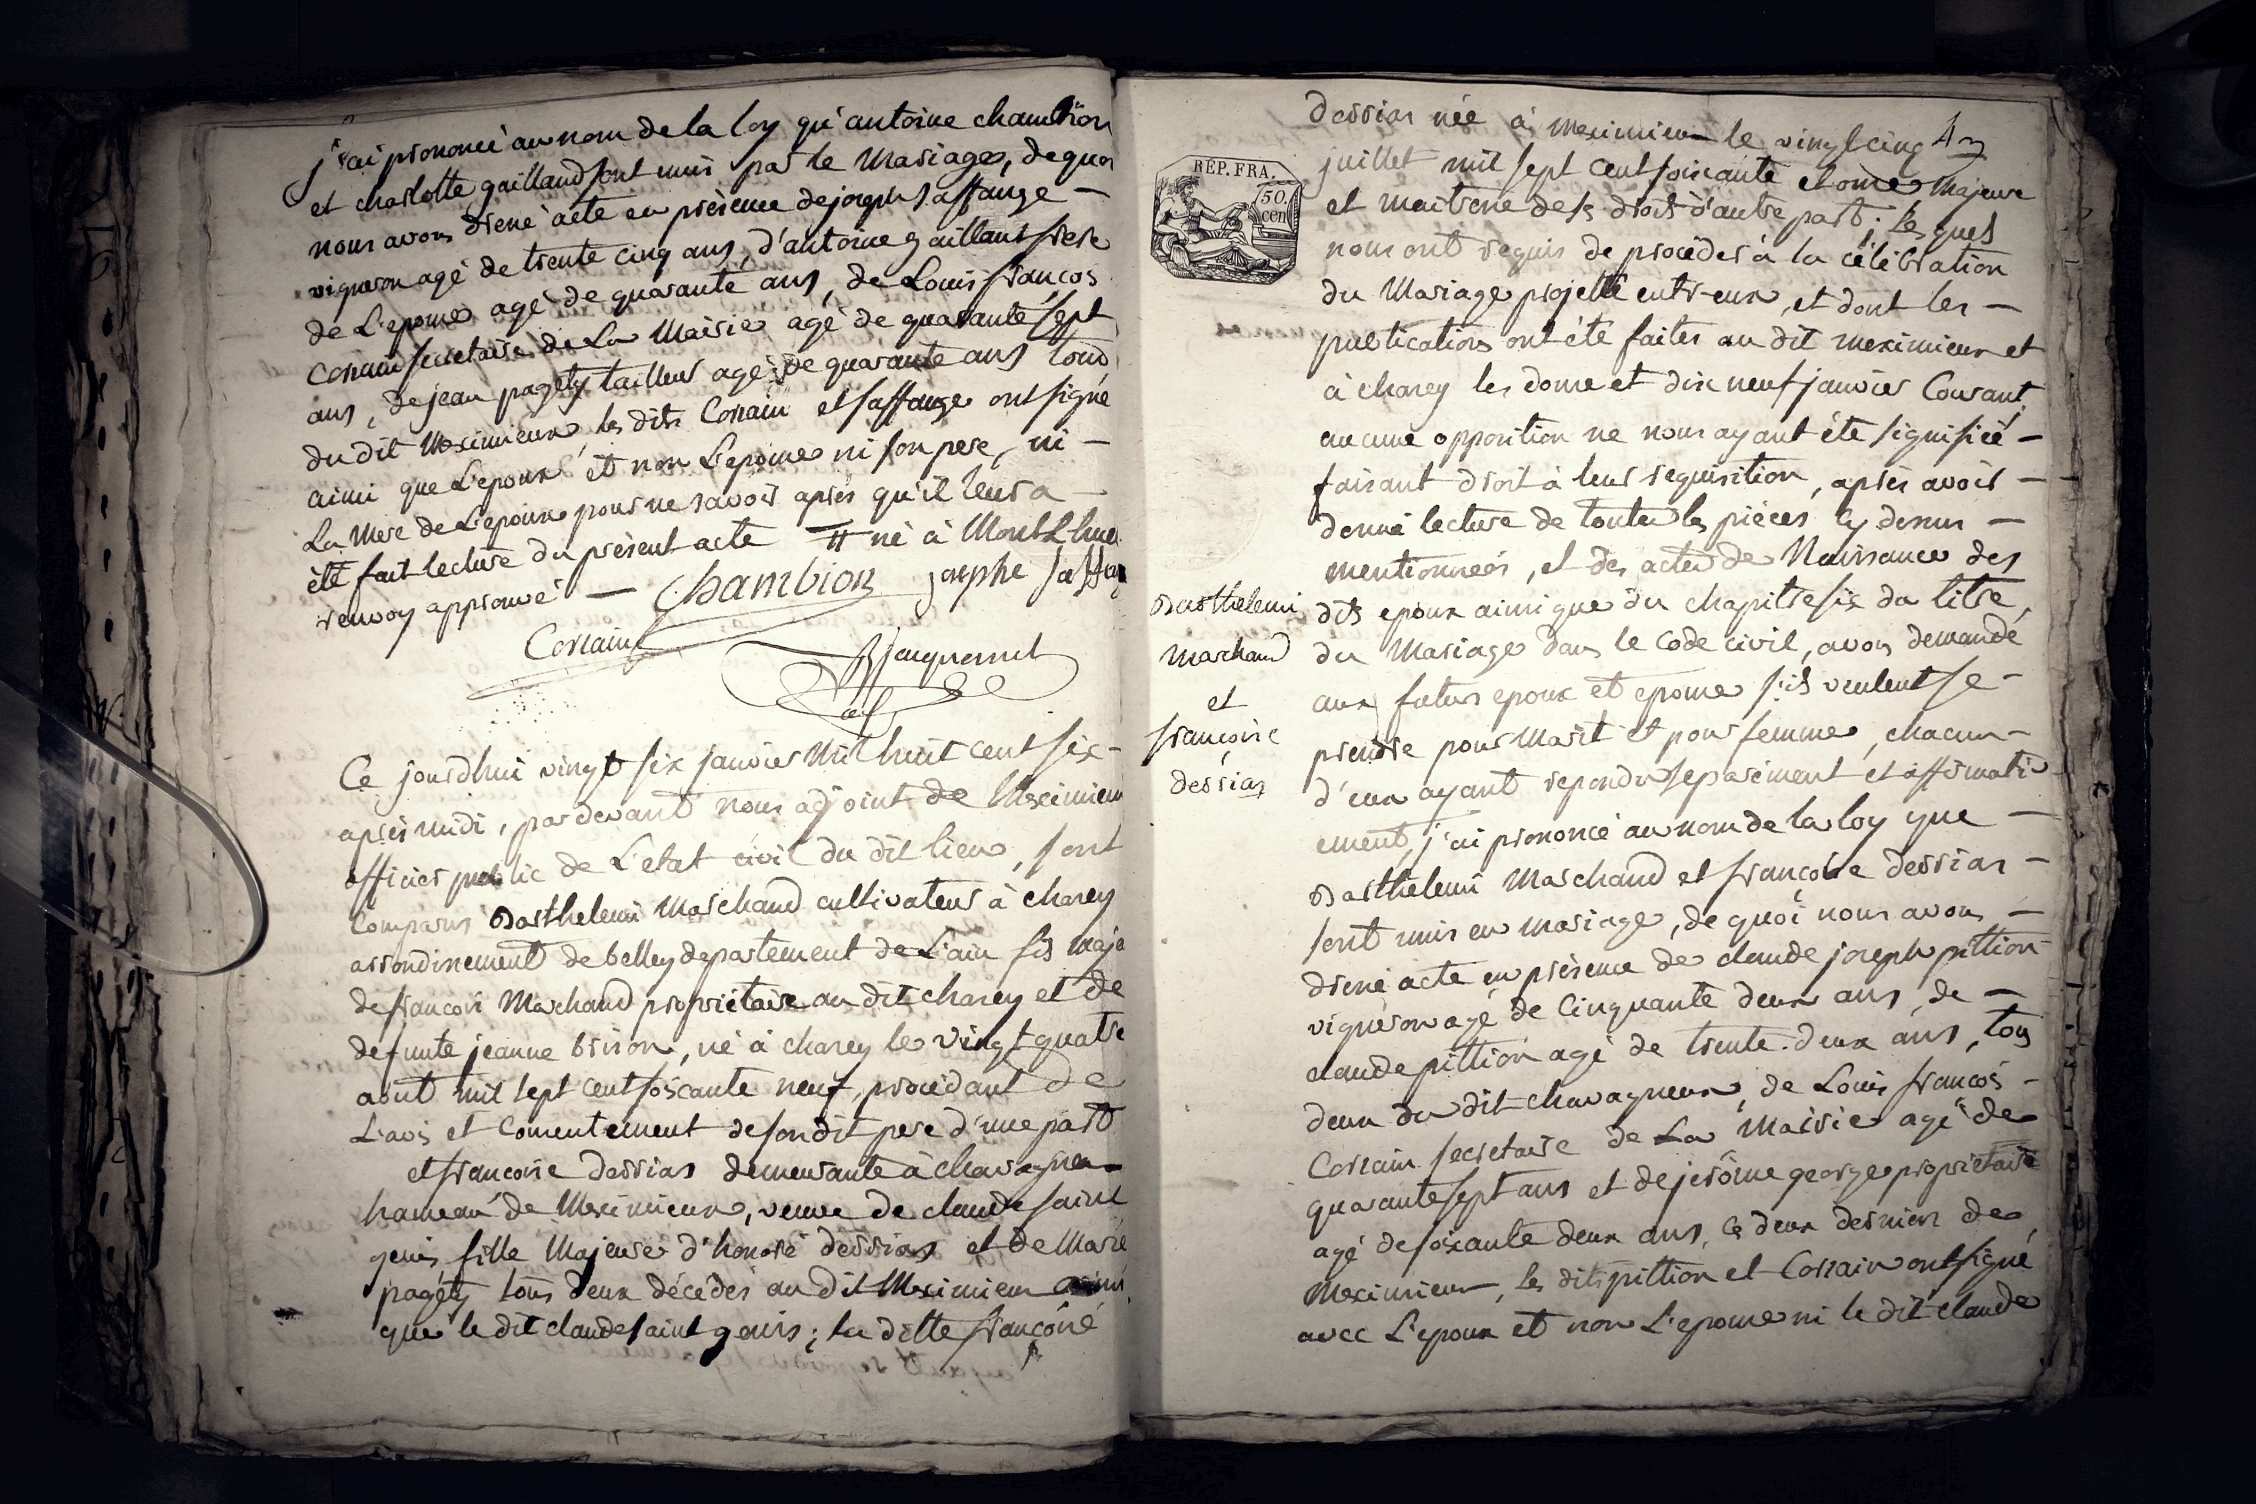 j'ai prononcé au nom de la loy qu'antoine chambion
et charlotte gailland sont unis par le Mariage, de quoi
nous avons drené acte en présence de joseph saffange —
vigneron agé de trente cinq ans, d'antoine gaillant frere
de L'epouse agé de quarante ans, de Louis françois
Corrain secretaire de La Mairie agé de quarante sept
ans, de jean pagety tailleur agé de quarante ans tous
du dit Meximieux, les dits Corrain et saffange ont signé
ainsi que L'epoux et non L'epouse ni son pere, ni —
La Mere de L'epoux pour ne savoir après qu'il leur a —
été fait lecture du présent acte # né à Montluel
renvoy approuvé — Chambion josephe saffan
Corrain
Jacquemet
adj
Ce jourdhui vingt six janvier Mil huit cent six —
après midi, pardevant nous adjoint de Meximieu
officier public de L'etat civil du dit lieu, sont
Comparus Barthelemi Marchand cultivateur à charey
arrondissement de belley departement de L'ain fils maje
de françois Marchand propriétaire au dit charey et de
defunte jeanne brison, né à charey le vingt quatre
aout mil sept cent soscante neuf, procédant de
L'avis et Consentement de son dit pere d'une part
et françoise derrias demeurante à chavagneux
hameau de Meximieux, veuve de claude saint
genis, fille Majeure d'honoré derrias et de Marie
pagety tous deux décédés au dit Meximieu ainsi
que le dit claude saint genis; la ditte françoise
43
derrias née à meximieux le vingt cinq
juillet mil sept cent soixante et onze Majeure
et maitresse de ses droits d'autre part; Lesquels
nous ont requis de procéder à la célébration
du Mariage projetté entr-eux, et dont les —
publications ont été faites au dit meximieux et
à charey les douze et dix neuf janvier Courant.
aucune opposition ne nous ayant été signifiée —
faisant droit à leur requisition, après avoir —
donné lecture de toutes les pièces cy dessus —
mentionnées, et des actes de Naissance des
dits epoux ainsi que du chapitre six du titre,
du Mariage dans le Code civil, avons demandé
aux futurs epoux et epouse s'ils veulent se —
prendre pour Mari et pour femme, chacun —
d'eux ayant repondu separément et affirmativ
ement, j'ai prononcé au nom de la loy que —
Barthelemi Marchand et françoise derrias —
sont unis en mariage, de quoi nous avons —
drené acte en présence de claude joseph pittion
vigneron agé de Cinquante deux ans, de —
claude pittion agé de trente-deux ans, tous
deux du dit chavagneux, de Louis françois —
Corrain secretaire de La Mairie agé de
quarante sept ans et de jérôme george propriétaire
agé de soixante deux ans, ces deux derniers de
Meximieux, les dits pittion et Corrain ont signé
avec L'epoux et non L'epouse ni le dit claude
RÉP. FRA.
50.
cen
Barthelemi
Marchand
et
françoise
derrias